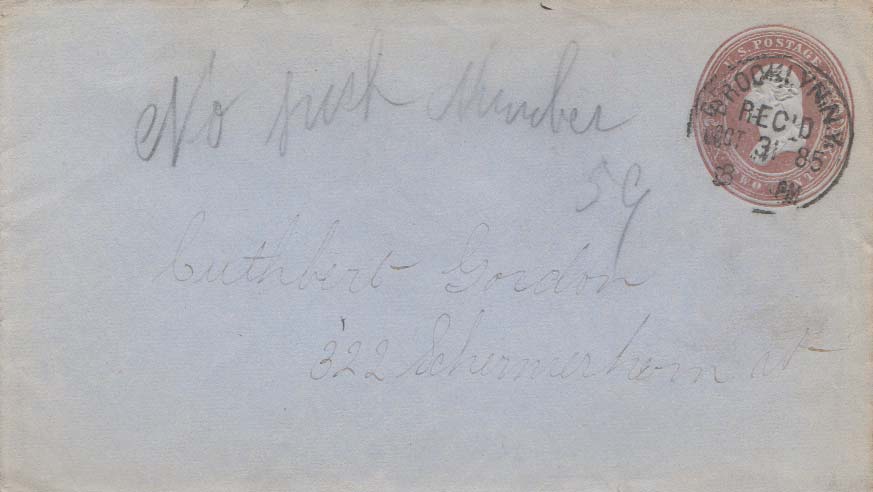 No such Number
59
Cuthbert Gordon
322 Schermerhorn St
U.S. POSTAGE
BROOKLYN N.Y.
REC'D
OCT 31 85
8 PM
TWO CENTS